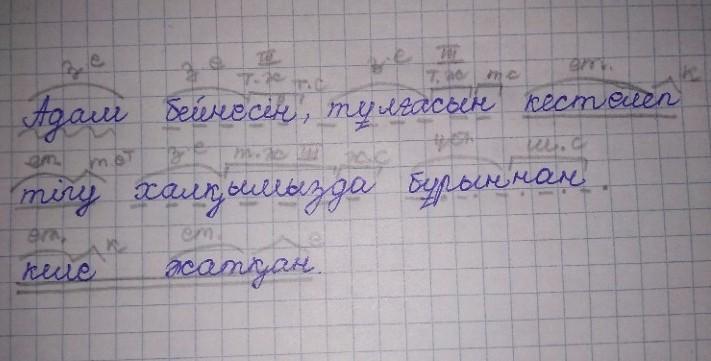 з е з е III з. е III ет. к
т.ж т.с т.ж т с
Адам бейнесін, тұлғасын кестелеп
ет т.ет з е т.ж III ж.с үст. ш.с
тігу халқымызда бұрыннан.
ет. к ет. е
келе жатқан.